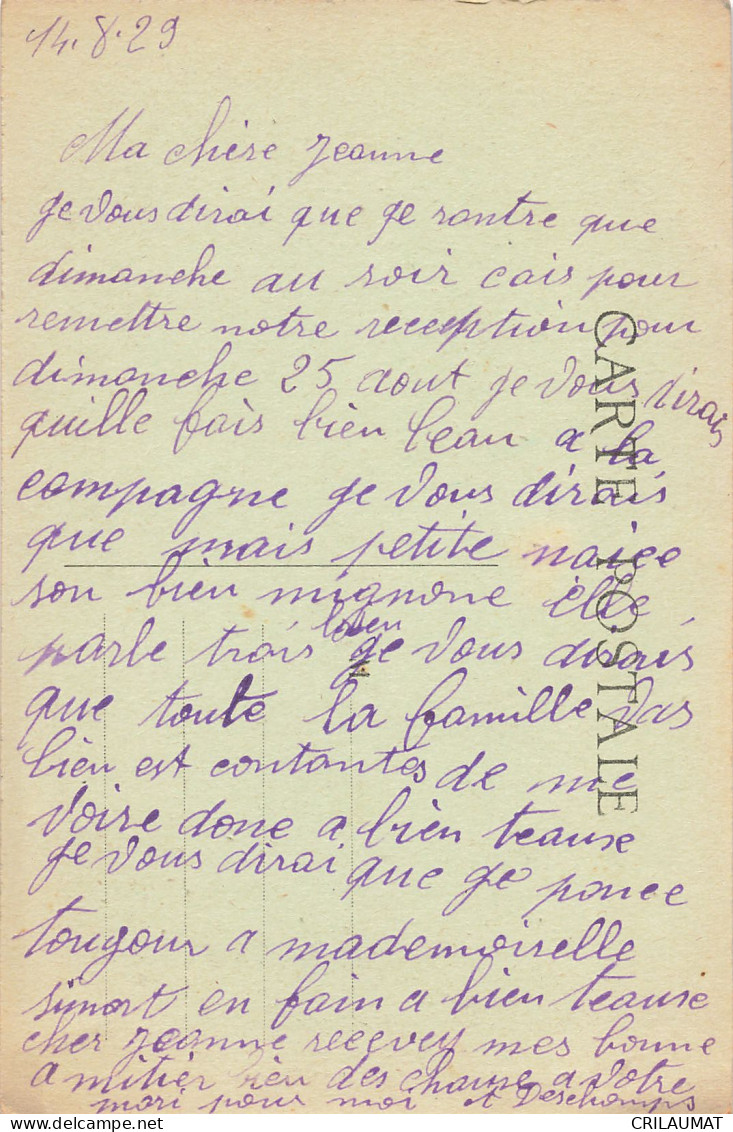 14.8.29
Ma chère Jeanne
je vous dirai que je rontre que
dimanche au soir cais pour
remettre notre reception pour
dimanche 25 aout je vous dirais
quille fais bien beau a la
compagne je vous dirais
que mais petite naice
son bien mignone elle
parle trais bien je vous dirais
que toute la famille vas
bien est contantes de me
voire donc a bien teause
je vous dirai que je ponce
tougour a mademoiselle
simort en fain a bien teause
cher Jeanne recevez mes bonne
amitier bien des chause a votre
mari pour moi A Deschamps
CARTE POSTALE
delcampe.net
CRILAUMAT